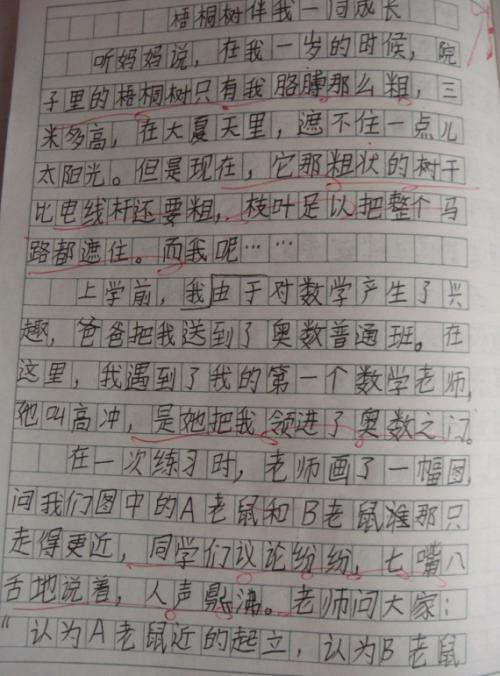 梧桐树伴我一同成长
听妈妈说，在我一岁的时候，院
子里的梧桐树只有我胳膊那么粗，三
米多高，在大夏天里，遮不住一点儿
太阳光。但是现在，它那粗状的树干
比电线杆还要粗，枝叶足以把整个马
路都遮住。而我呢……
上学前，我由于对数学产生了兴
趣，爸爸把我送到了奥数普通班。在
这里，我遇到了我的第一个数学老师，
她叫高冲，是她把我领进了奥数之门。
在一次练习时，老师画了一幅图，
问我们图中的A老鼠和B老鼠谁那只
走得更近，同学们议论纷纷，七嘴八
舌地说着，人声鼎沸。老师问大家：
“认为A老鼠近的起立，认为B老鼠